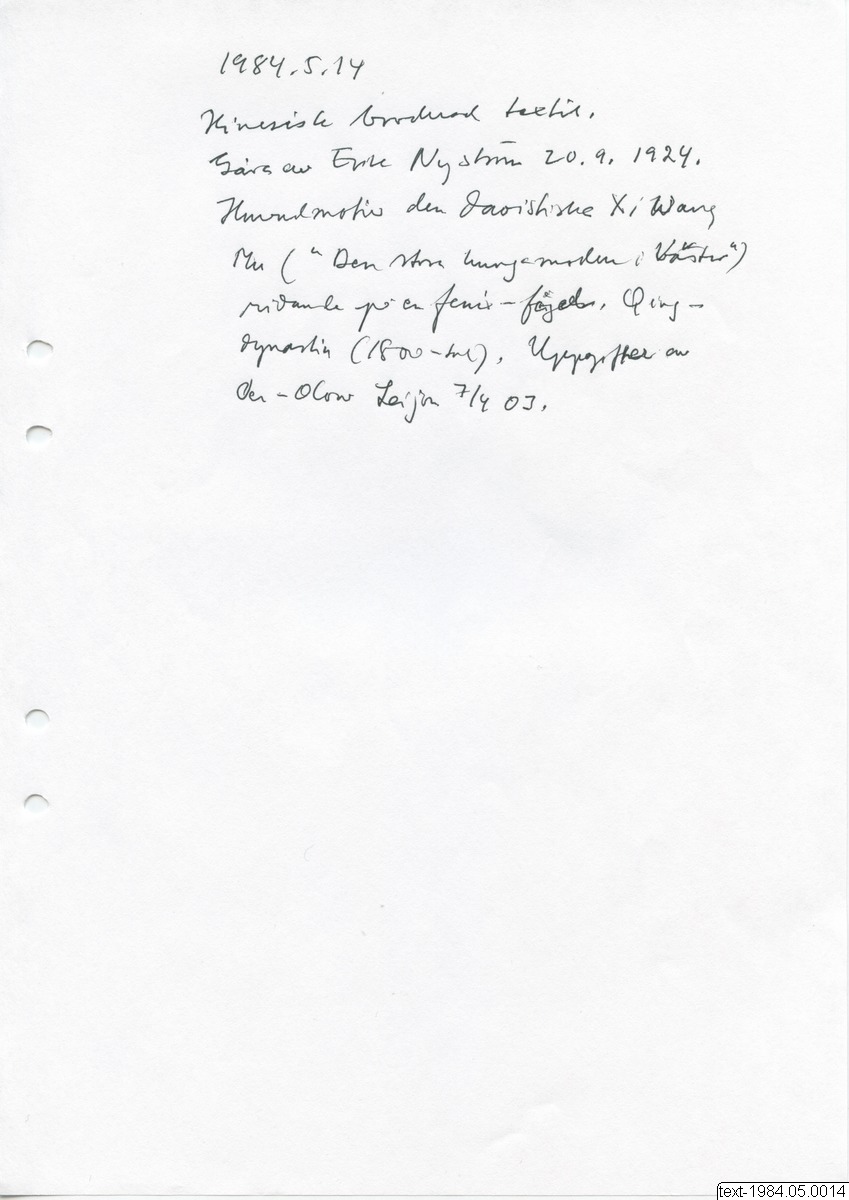 1984.5.14
Kinesisk broderad textil.
Gåva av Erik Nyström 20.9.1924.
Huvudmotiv den daoistiska Xi Wang
Mu ("Den stora kungamodern i Väster")
ridande på en fenix-fågel. Qing-
dynastin (1800-tal). Uppgifter av
Per-Olow Leijon 7/4 03.
text-1984.05.0014